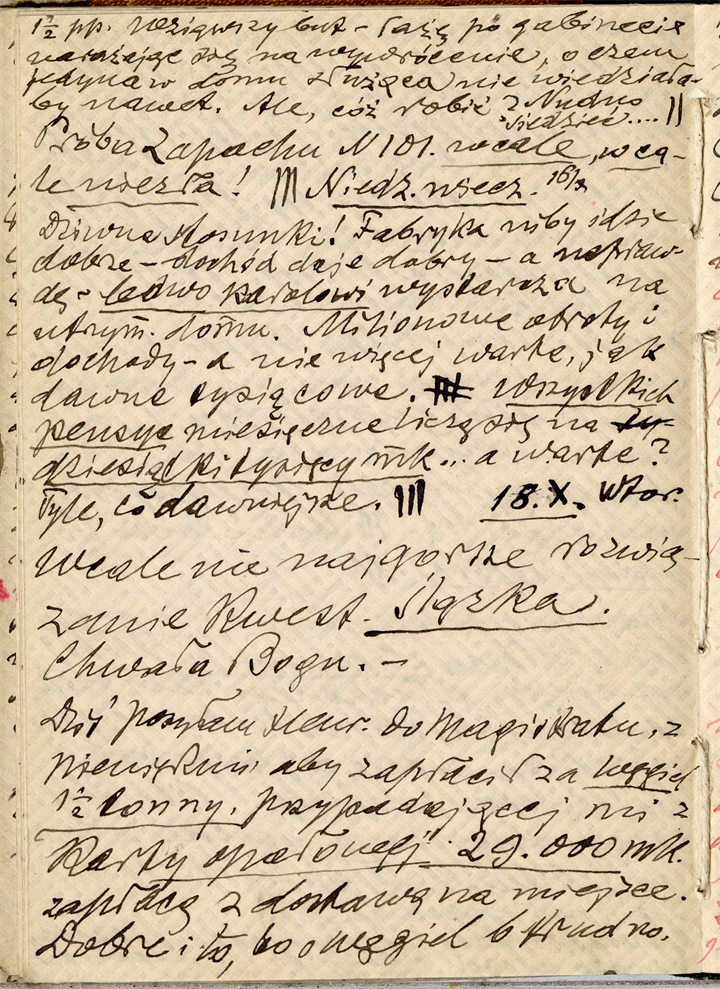 1½ pp. wziąwszy but – łażę po gabinecie
narażając się na wywrócenie, o czem
jedyna w domu służąca nie wiedziała-
by nawet. Ale, cóż robić? Nudno
siedzieć.... ||
Próba Zapachu N 101. wcale, wca-
le niezła! ||| Niedz. wiecz. 16/X
Dziwne stosunki! Fabryka niby idzie
dobrze – dochód daje dobry – a napraw-
dę – ledwo Karolowi wystarcza na
utrzym. domu. Milionowe obroty i
dochody – a nie więcej warte, jak
dawne tysiącowe. Wszystkich
pensye miesięczne liczą się na
dziesiątki tysięcy mk... a warte?
Tyle, co dawniejsze. ||| 18.X. Wtor.
Wcale nie najgorsze rozwią-
zanie Kwest. Śląska.
Chwała Bogu. –
Dziś posyłam Henr. do Magistratu, z
pieniędzmi aby zapłacił za węgiel
1½ tonny, przypadającej mi z
Karty opałowej. 29.000 mk.
zapłacę z dostawą na miejsce.
Dobre i to, bo o węgiel b. trudno.